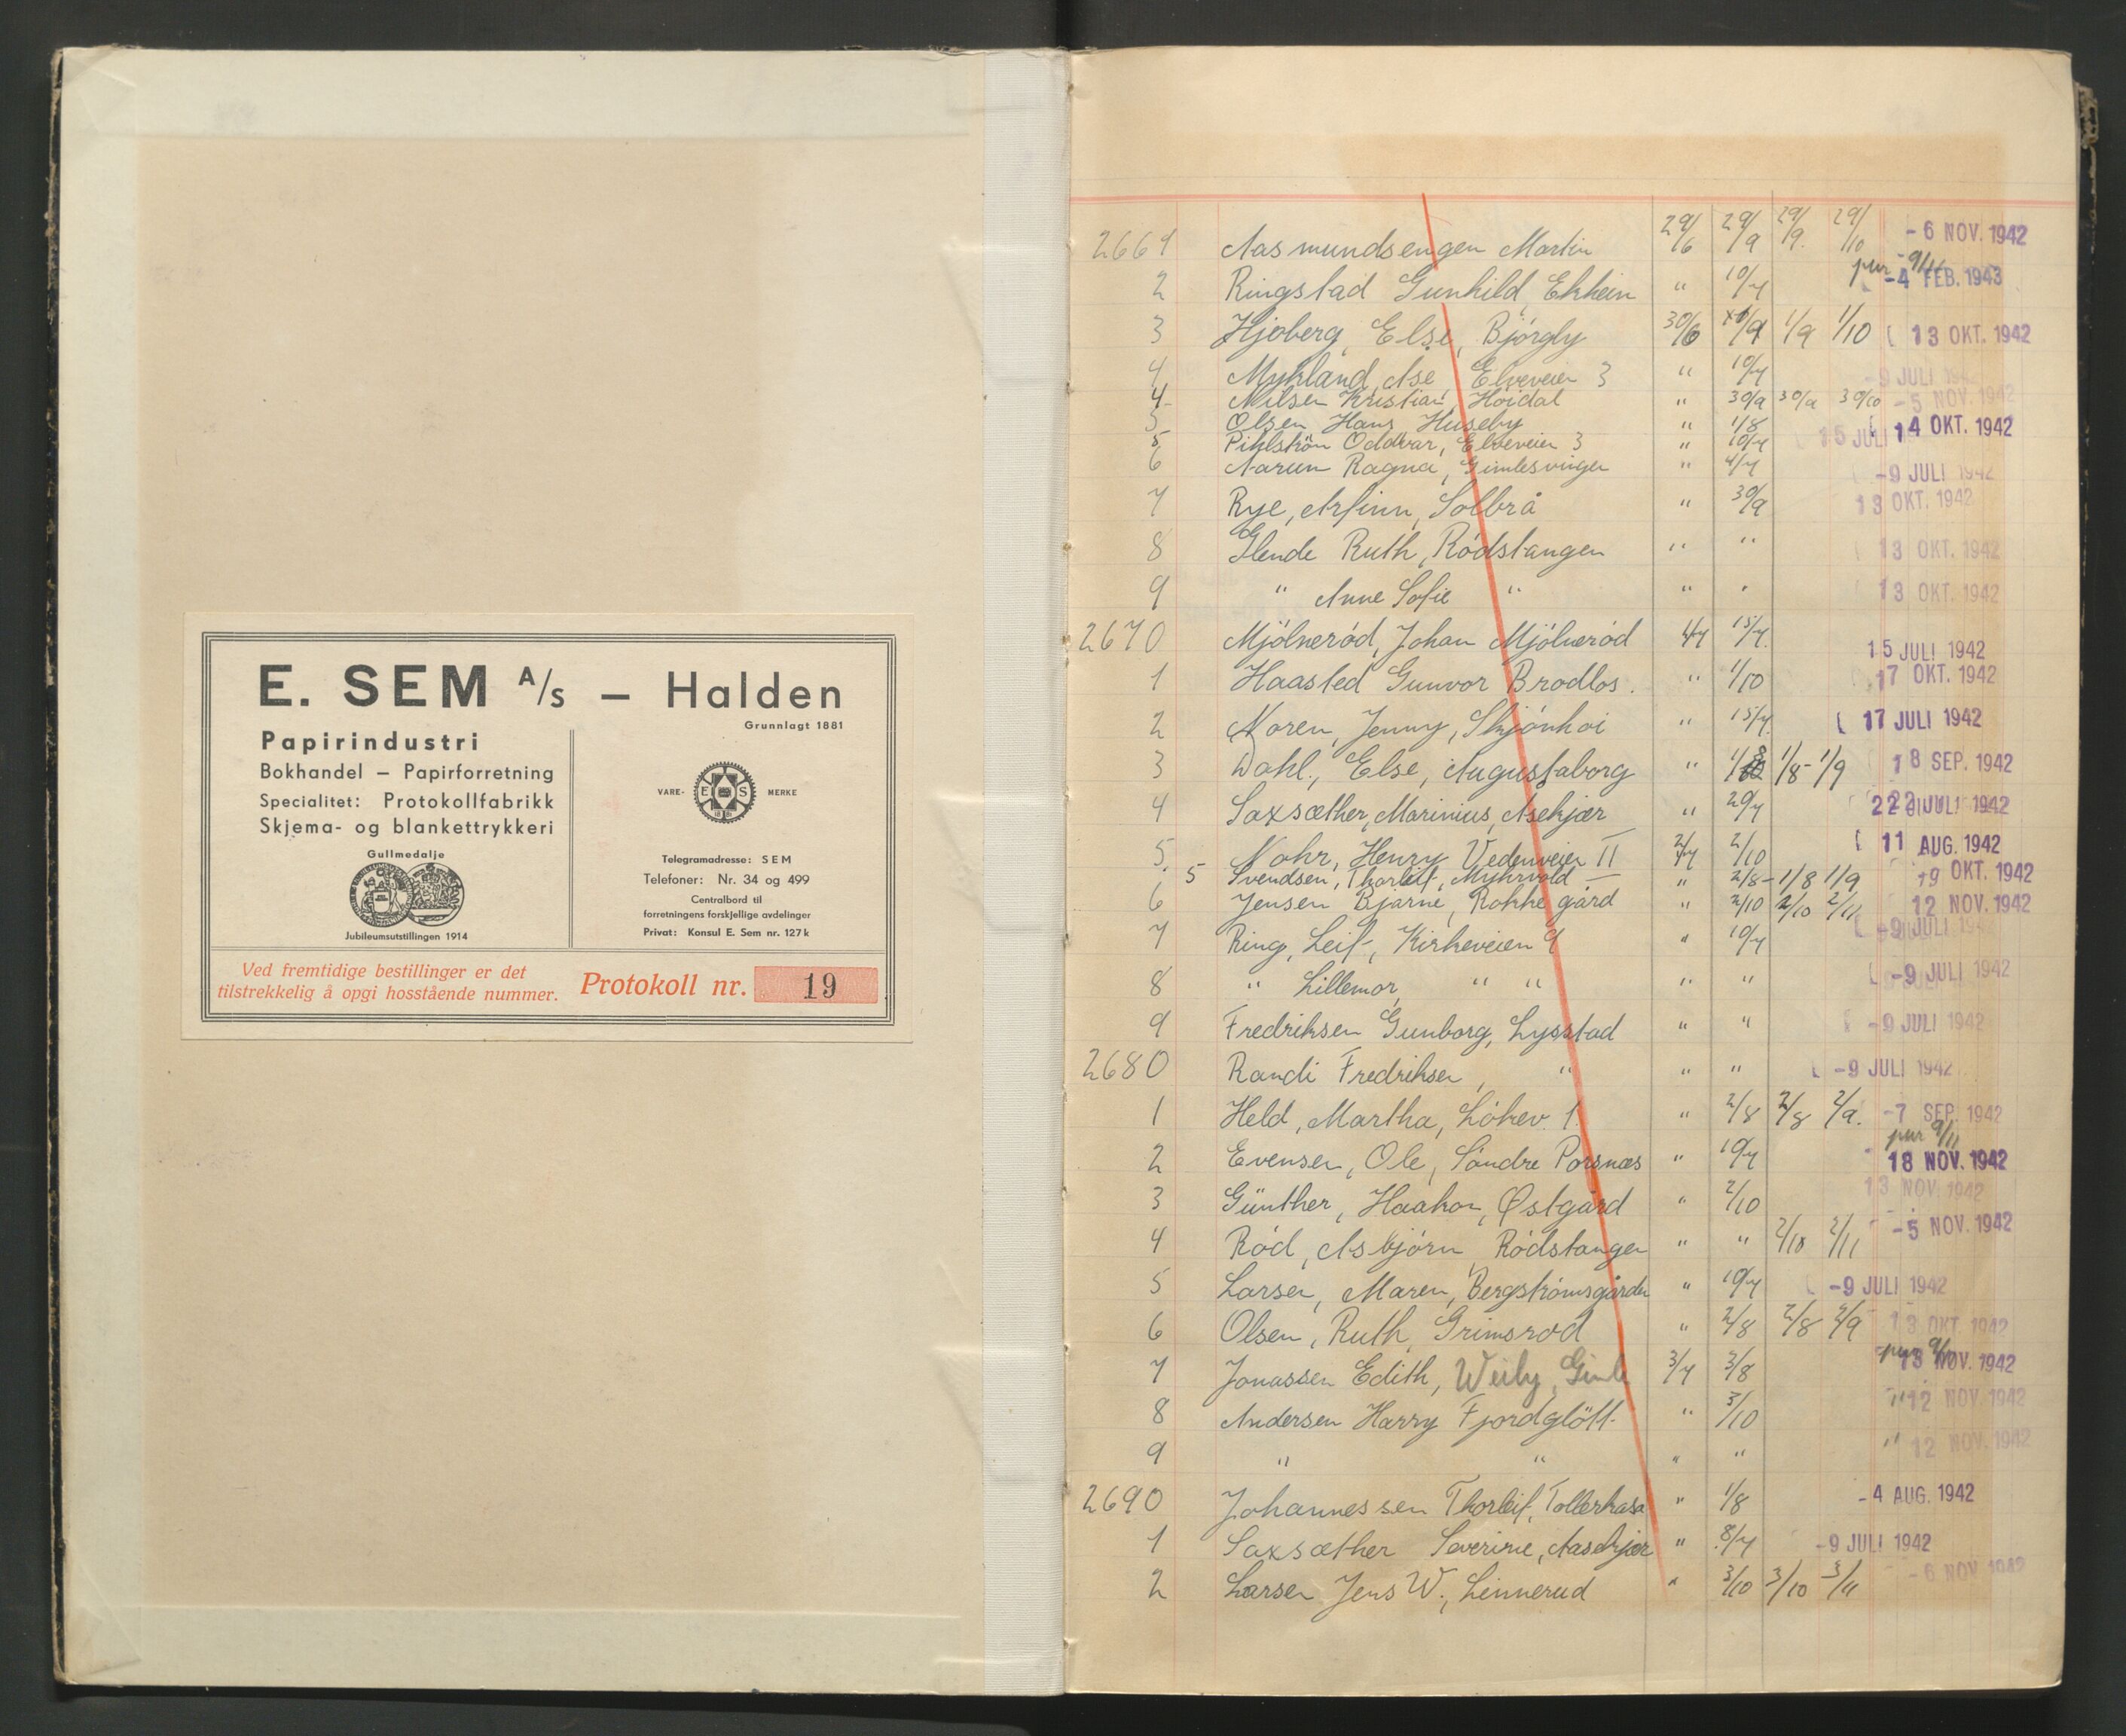 E. SEM A/s – Halden
Grunnlagt 1881
Papirindustri
Bokhandel – Papirforretning
Specialitet: Protokollfabrikk
Skjema- og blankettrykkeri
Gullmedalje
Jubileumsutstillingen 1914
VARE- E S MERKE
Telegramadresse: SEM
Telefoner: Nr. 34 og 499
Centralbord til
forretningens forskjellige avdelinger
Privat: Konsul E. Sem nr. 127 k
Ved fremtidige bestillinger er det
tilstrekkelig å opgi hosstående nummer.
Protokoll nr. 19
2661 Aasmundsengen Martin 29/6 29/9 29/9. 29/10 -6 NOV. 1942
pur 9/11
2 Ringstad Gunhild, Ekhein " 10/7 -4 FEB. 1943
3 Hjøberg, Else, Bjørgly 30/6 1/9 1/10 13 OKT. 1942
4 Mykland, Ase, Elveveien 3 " 10/7 -9 JULI 1942
4 Nilsen Kristian, Høidal " 30/9 30/9 30/10 -5 NOV. 1942
5 Olsen Hans Huseby " 1/8 14 OKT. 1942
5 Pihlström Oddvar, Elveveien 3 " 10/7 15 JULI
6 Narum Ragna, Gimlesvingen " 4/7 -9 JULI 1942
7 Rye, Arfinn, Solbrå " 30/9 13 OKT. 1942
8 Glende Ruth, Rødstangen " " 13 OKT. 1942
9 " Anne Sofie " " " 13 OKT. 1942
2670 Mjølnerød, Johan Mjølnerød 1/7 15/7. 15 JULI 1942
1 Haasted Gunvor Brødløs. " 1/10 17 OKT. 1942
2 Noren, Jenny, Skjønhoi " 15/7. 17 JULI 1942
3 Dahl., Else, Augustaborg " 1/8 1/8- 1/9 18 SEP. 1942
4 Saxsæther, Marinius, Asekjær " 20/7 22 JULI 1942
5. Nohr, Henry Vedenveien II 2/7 2/10 11 AUG. 1942
5 Svendsen, Thorleif, Myhrvold – " 2/8- 1/8 1/9 19 OKT. 1942
6 Jensen Bjarne, Rokke gård " 2/10 2/10 2/11 12 NOV. 1942
7 Ring, Leif, Kirkeveien 9 " 10/7 -9 JULI 1942
8 " Lillemor, " " " " -9 JULI 1942
9 Fredriksen Gunborg, Lysstad " " -9 JULI 1942
2680 Randi Fredriksen, " " " -9 JULI 1942
1 Held, Martha, Løkev. 1. " 2/8 2/8 2/9. -7 SEP. 1942
pur 9/11
2 Evensen, Ole, Søndre Porsnæs " 10/7 18 NOV. 1942
3 Günther, Haakon, Østgård " 2/10 13 NOV. 1942
4 Rød, Asbjørn, Rødstangen " " 2/10 2/11 -5 NOV. 1942
5 Larsen, Maren, Bergstrømsgården " 10/7 -9 JULI 1942
6 Olsen, Ruth, Grimsrød " 2/8 2/8 2/9 13 OKT. 1942
pur 9/11
7 Jonassen Edith, Weiby, Gimle 3/7 3/8 13 NOV. 1942
8 Andersen Harry Fjordgløtt " 3/10 " 12 NOV. 1942
9 " " " " " 12 NOV. 1942
2690 Johannessen Thorleif, Tollerkasa " 1/8 -4 AUG. 1942
1 Saxsæther Severine, Aasekjær " 8/7 -9 JULI 1942
2 Larsen Jens W., Linnerud " 3/10 3/10 3/11 -6 NOV 1942